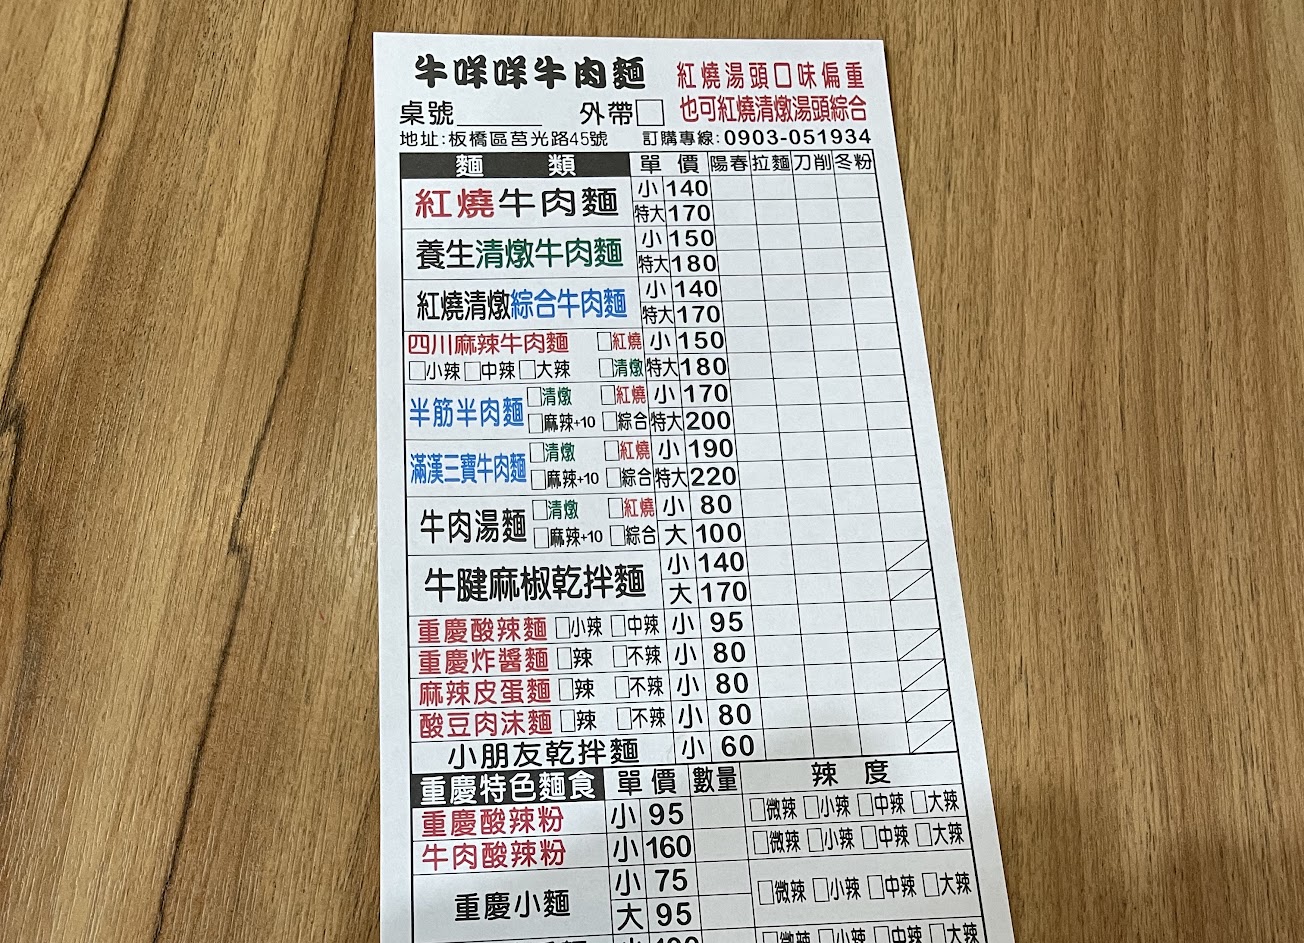 牛咩咩牛肉麵 紅燒湯頭口味偏重
桌號______ 外帶□ 也可紅燒清燉湯頭綜合
地址:板橋區莒光路45號 訂購專線:0903-051934
麵類 單價 陽春 拉麵 刀削 冬粉
紅燒牛肉麵 小 140
特大 170
養生清燉牛肉麵 小 150
特大 180
紅燒清燉綜合牛肉麵 小 140
特大 170
四川麻辣牛肉麵 □紅燒 小 150
□小辣□中辣□大辣 □清燉 特大 180
半筋半肉麵 □清燉 □紅燒 小 170
□麻辣+10 □綜合 特大 200
滿漢三寶牛肉麵 □清燉 □紅燒 小 190
□麻辣+10 □綜合 特大 220
牛肉湯麵 □清燉 □紅燒 小 80
□麻辣+10 □綜合 大 100
牛腱麻椒乾拌麵 小 140
大 170
重慶酸辣麵 □小辣 □中辣 小 95
重慶炸醬麵 □辣 □不辣 小 80
麻辣皮蛋麵 □辣 □不辣 小 80
酸豆肉沫麵 □辣 □不辣 小 80
小朋友乾拌麵 小 60
重慶特色麵食 單價 數量 辣度
重慶酸辣粉 小 95 □微辣 □小辣 □中辣 □大辣
牛肉酸辣粉 小 160 □微辣 □小辣 □中辣 □大辣
重慶小麵 小 75 □微辣 □小辣 □中辣 □大辣
大 95
□微辣 □小辣 □中辣 □大辣